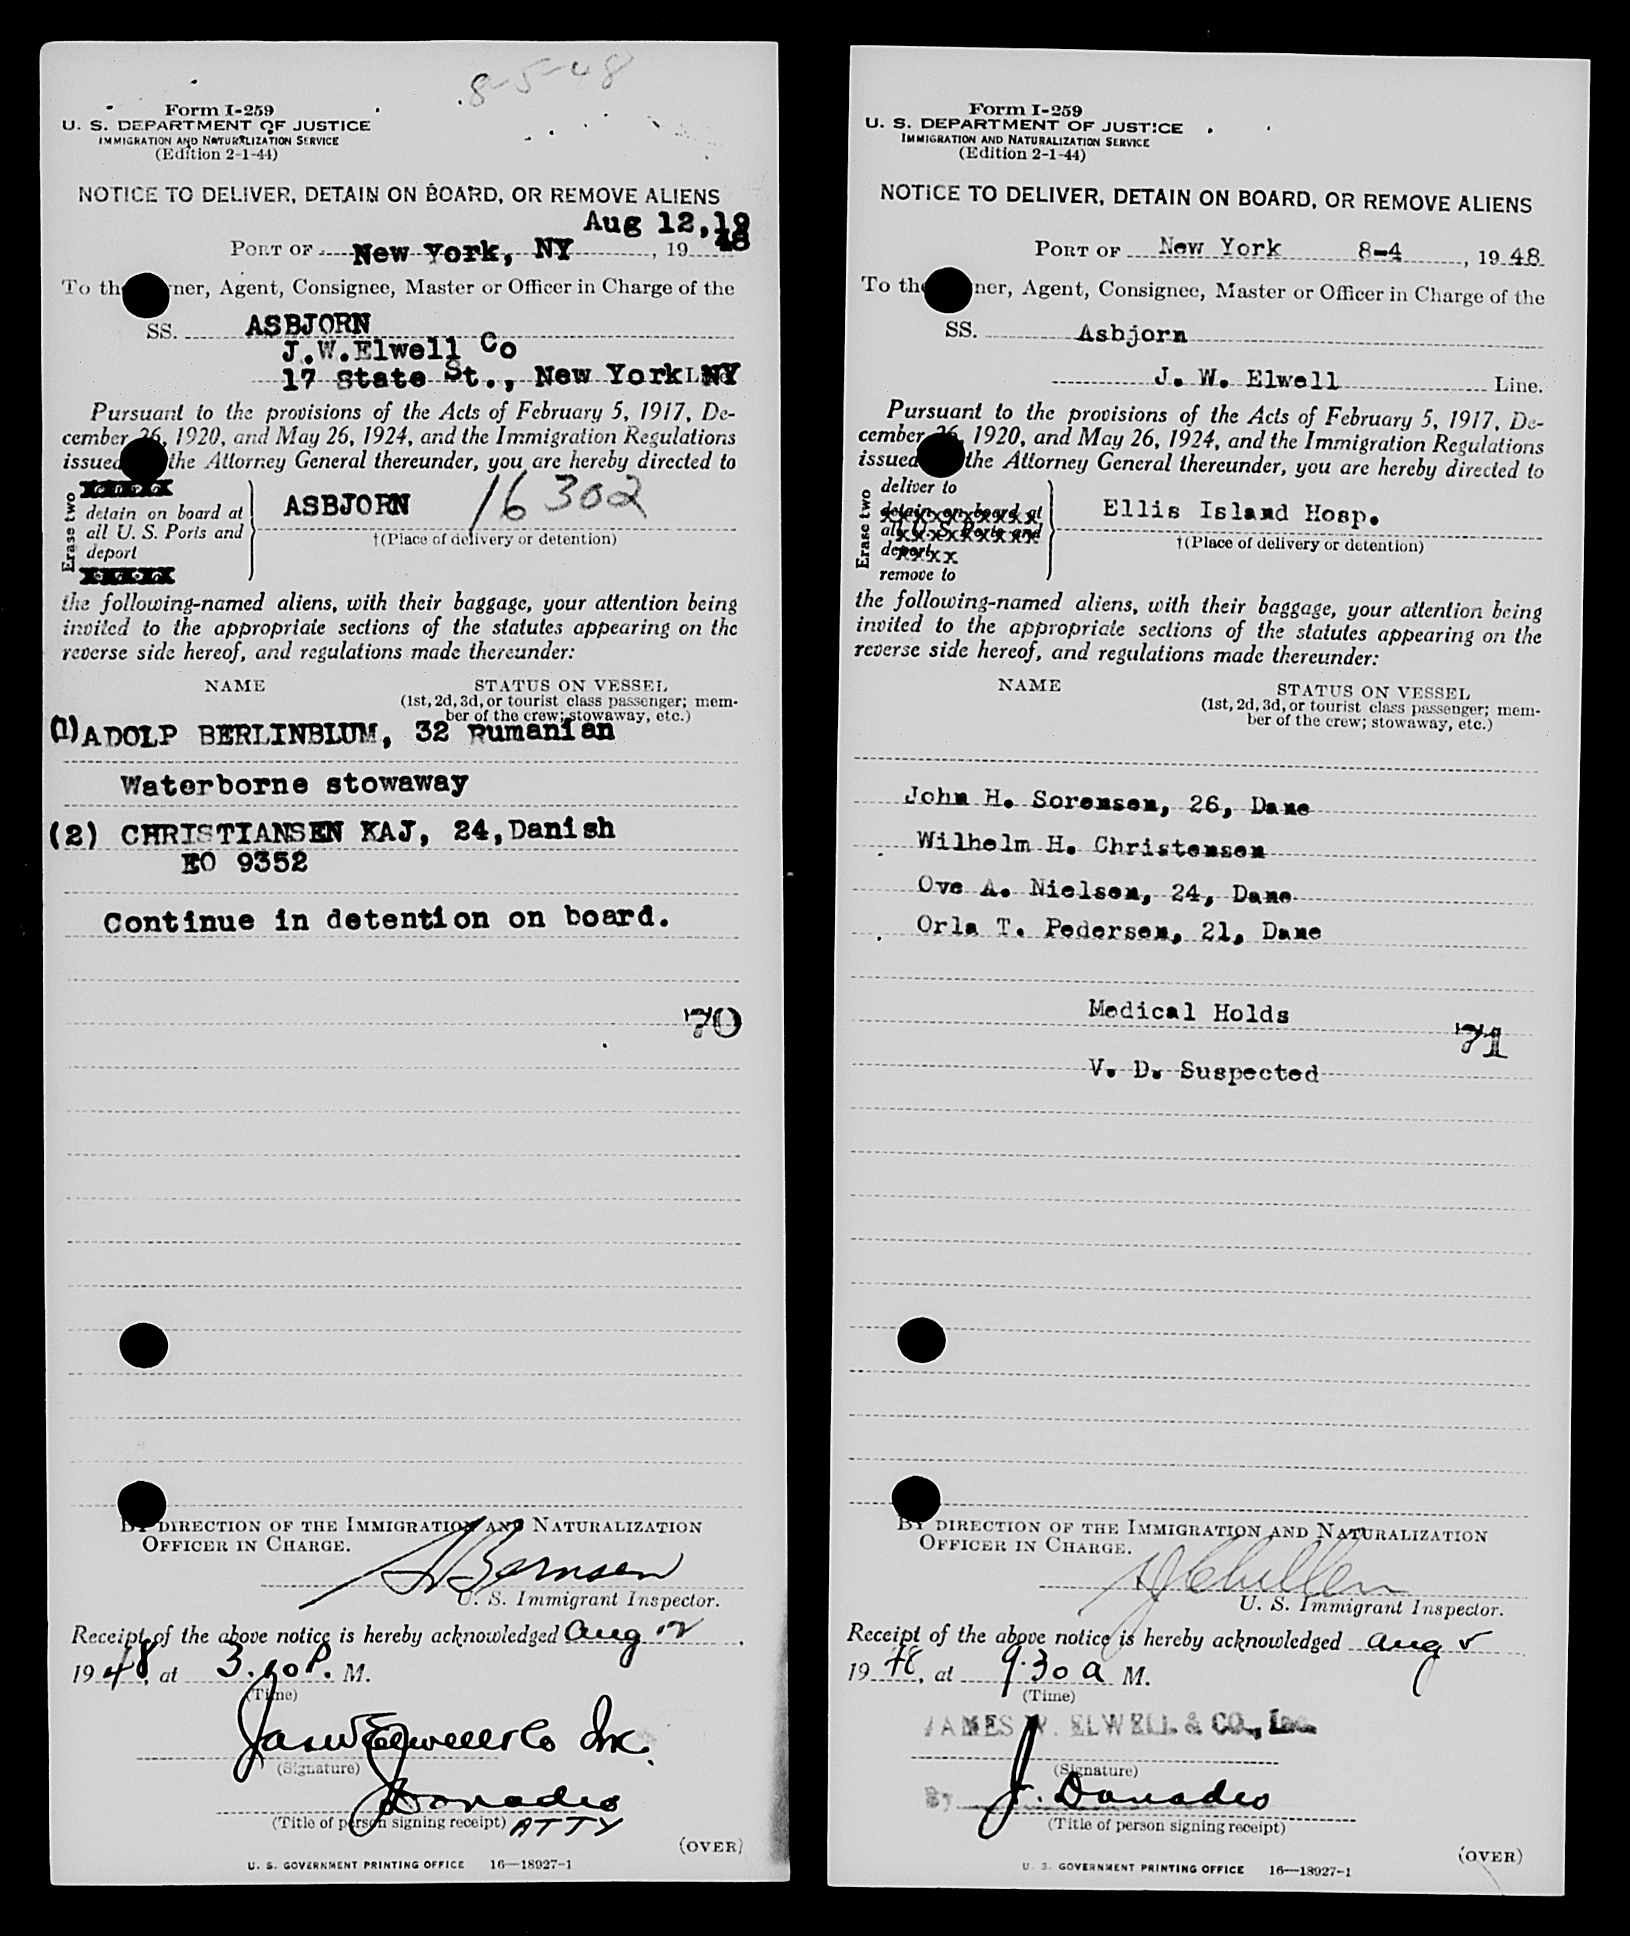 8-5-48
Form I-259
U. S. DEPARTMENT OF JUSTICE
IMMIGRATION AND NATURALIZATION SERVICE
(Edition 2-1-44)
NOTICE TO DELIVER, DETAIN ON BOARD, OR REMOVE ALIENS
Aug 12,19
PORT OF New York, NY , 19 48
To th ner, Agent, Consignee, Master or Officer in Charge of the
SS. ASBJORN
J.W.Elwell Co
17 State St., New York NY
Pursuant to the provisions of the Acts of February 5, 1917, De-
cember 26, 1920, and May 26, 1924, and the Immigration Regulations
issued the Attorney General thereunder, you are hereby directed to
Erase two
detain on board at
all U. S. Ports and
deport
ASBJORN 16302
†(Place of delivery or detention)
the following-named aliens, with their baggage, your attention being
invited to the appropriate sections of the statutes appearing on the
reverse side hereof, and regulations made thereunder:
NAME STATUS ON VESSEL
(1st, 2d, 3d, or tourist class passenger; mem-
ber of the crew; stowaway, etc.)
(1) ADOLP BERLINBLUM, 32 Rumanian
Waterborne stowaway
(2) CHRISTIANSEN KAJ, 24,Danish
EO 9352
Continue in detention on board.
70
BY DIRECTION OF THE IMMIGRATION AND NATURALIZATION
OFFICER IN CHARGE.
U. S. Immigrant Inspector.
Receipt of the above notice is hereby acknowledged Aug 12 .
19 48, at 3. P. M.
(Time)
Jas W Elwell & Co Inc.
(Signature)
J Donadio
(Title of person signing receipt) ATTY
(OVER)
U. S. GOVERNMENT PRINTING OFFICE 16—18927-1
Form I-259
U. S. DEPARTMENT OF JUSTICE
IMMIGRATION AND NATURALIZATION SERVICE
(Edition 2-1-44)
NOTICE TO DELIVER, DETAIN ON BOARD, OR REMOVE ALIENS
PORT OF New York 8-4 , 19 48
To th ner, Agent, Consignee, Master or Officer in Charge of the
SS. Asbjorn
J. W. Elwell Line.
Pursuant to the provisions of the Acts of February 5, 1917, De-
cember 26, 1920, and May 26, 1924, and the Immigration Regulations
issued the Attorney General thereunder, you are hereby directed to
Erase two
deliver to
detain on board at
all U. S. Ports and
deport
remove to
Ellis Island Hosp.
†(Place of delivery or detention)
the following-named aliens, with their baggage, your attention being
invited to the appropriate sections of the statutes appearing on the
reverse side hereof, and regulations made thereunder:
NAME STATUS ON VESSEL
(1st, 2d, 3d, or tourist class passenger; mem-
ber of the crew; stowaway, etc.)
John H. Sorensen, 26, Dane
Wilhelm H. Christensen
Ove A. Nielsen, 24, Dane
Orla T. Pedersen, 21, Dane
Medical Holds
71
V. D. Suspected
BY DIRECTION OF THE IMMIGRATION AND NATURALIZATION
OFFICER IN CHARGE.
U. S. Immigrant Inspector.
Receipt of the above notice is hereby acknowledged Aug 5
19 48, at 9.30 a M.
(Time)
JAMES W. ELWELL & CO., Inc.
(Signature)
By J. Donadio
(Title of person signing receipt)
(OVER)
U. S. GOVERNMENT PRINTING OFFICE 16—18927-1